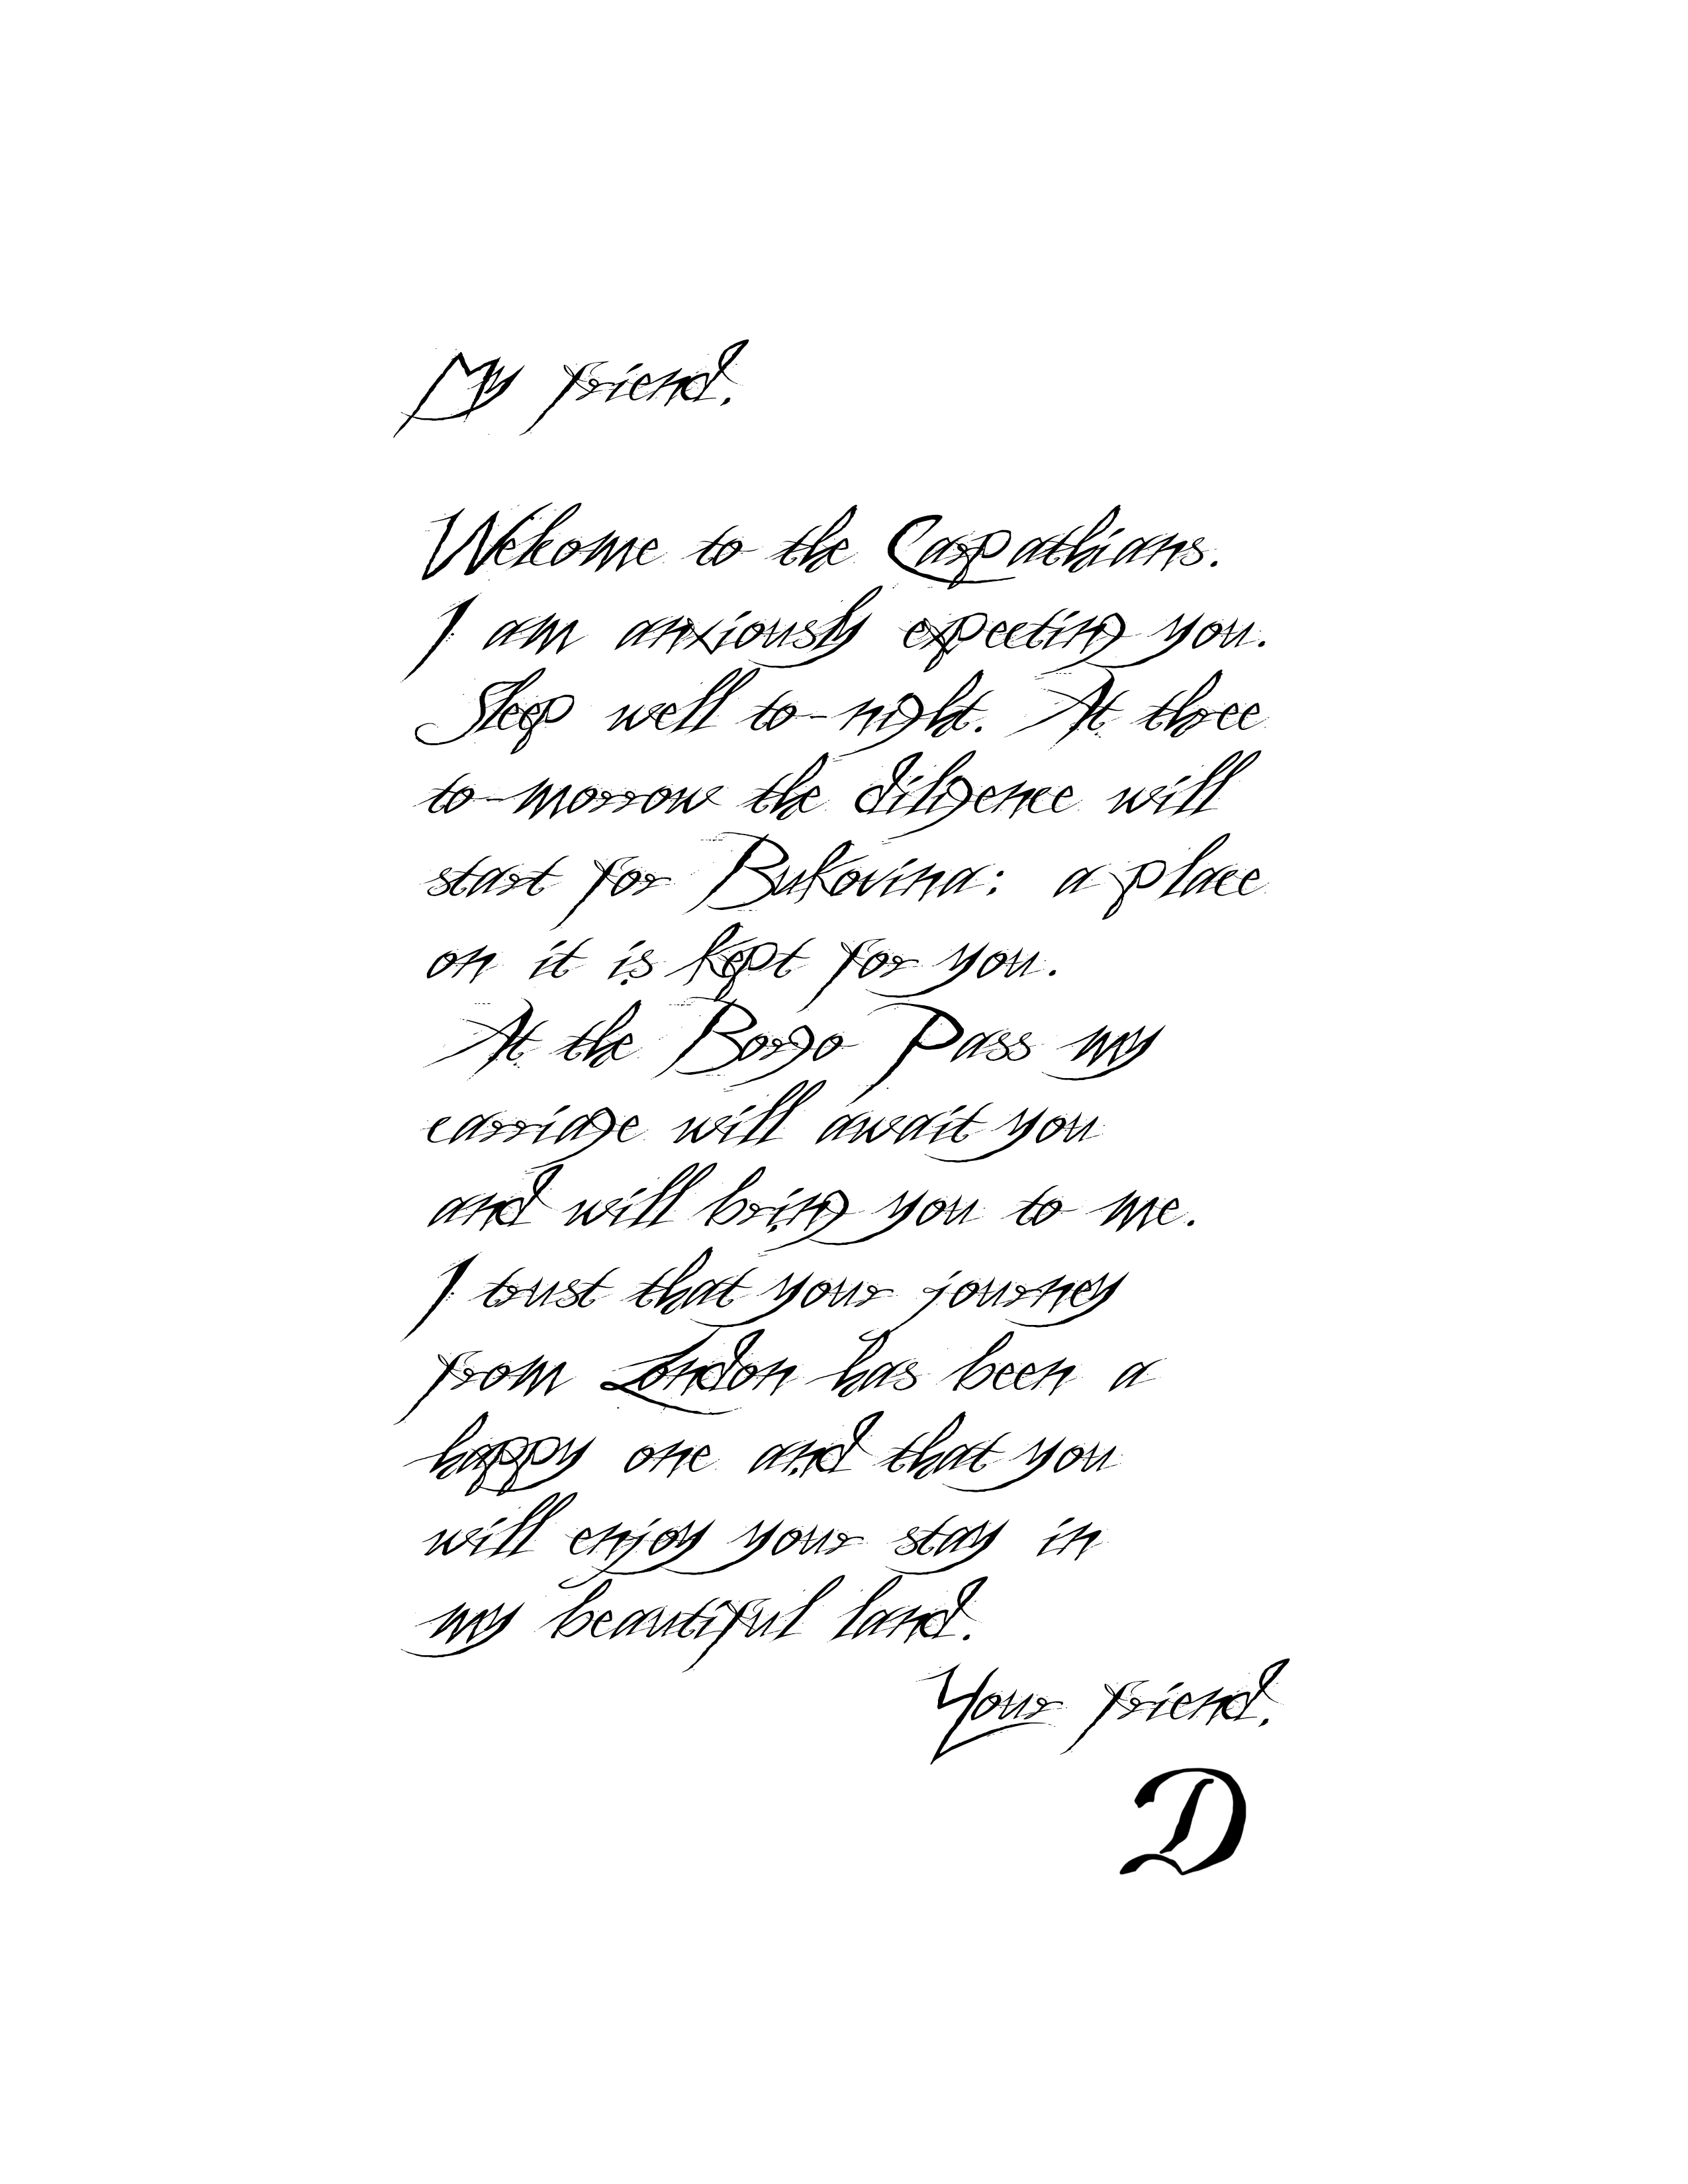 My friend,
Welcome to the Carpathians.
I am anxiously expecting you.
Sleep well to-night. At three
to-morrow the diligence will
start for Bukovina: a place
on it is kept for you.
At the Borgo Pass my
carriage will await you
and will bring you to me.
I trust that your journey
from London has been a
happy one and that you
will enjoy your stay in
my beautiful land.
Your friend,
D